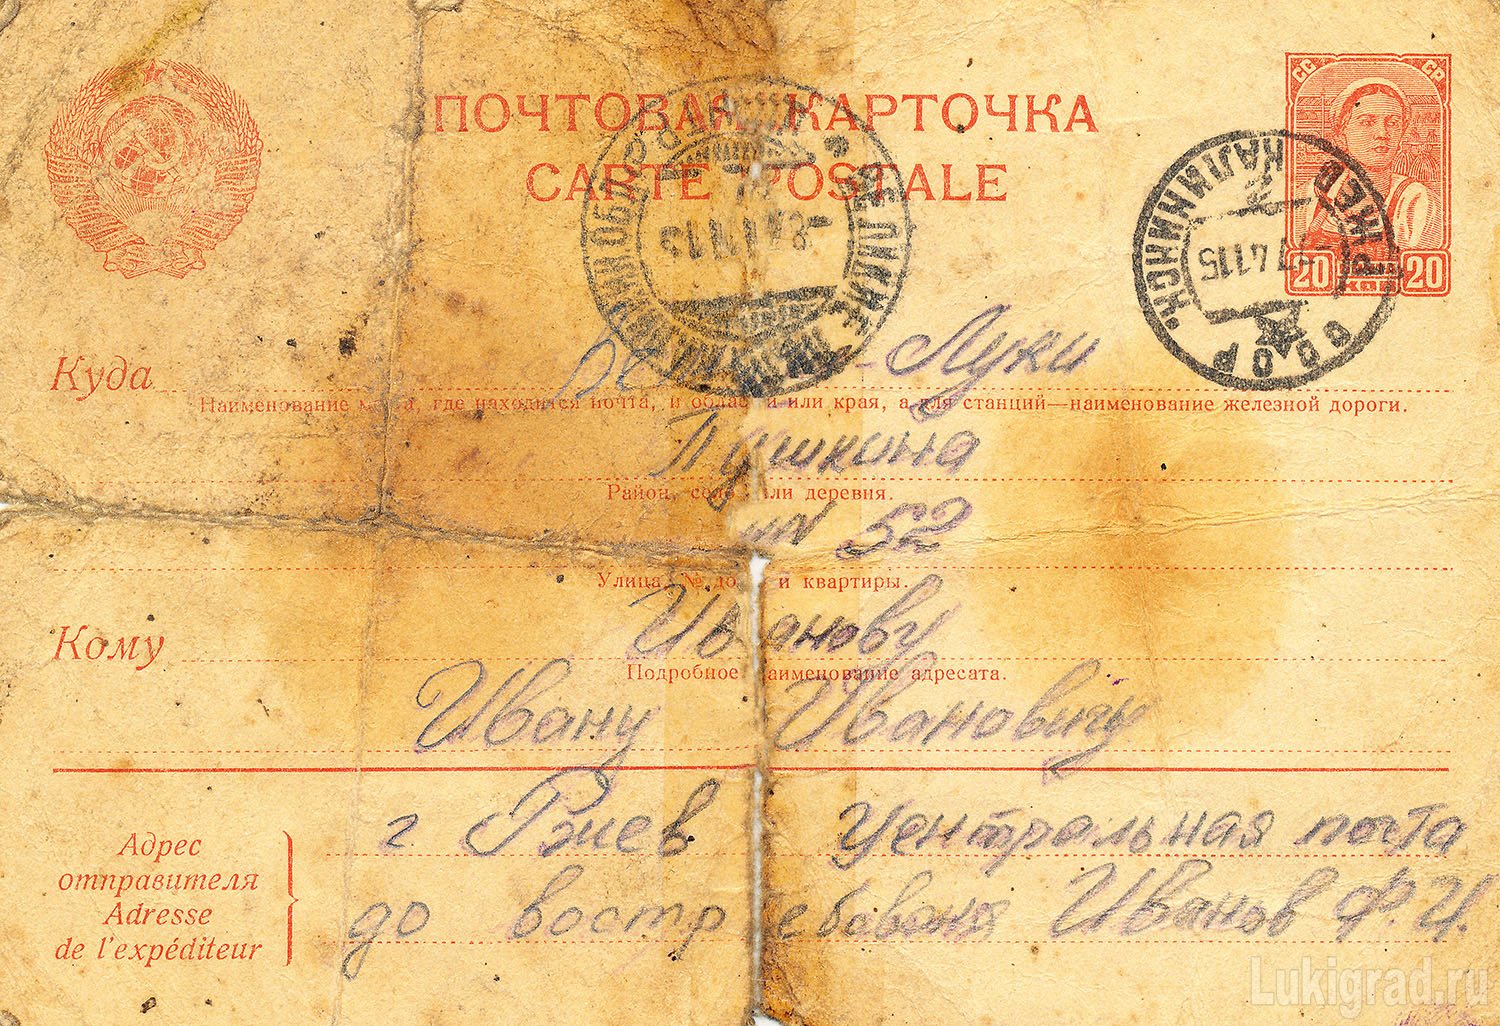 ПОЧТОВАЯ КАРТОЧКА
CARTE POSTALE
СС СР
20 КОП 20
РЖЕВ КАЛИНИНСК
7 41 15
Куда
Луки
Наименование места, где находится почта, и области или края, а для станций—наименование железной дороги.
Пушкина
Район, село или деревня.
52
Улица, № дома и квартиры.
Кому Иванову
Подробное наименование адресата.
Ивану Ивановичу
Адрес
отправителя
Adresse
de l'expéditeur
г Ржев Центральная почта
до востребования Иванов Ф.И.
Lukigrad.ru